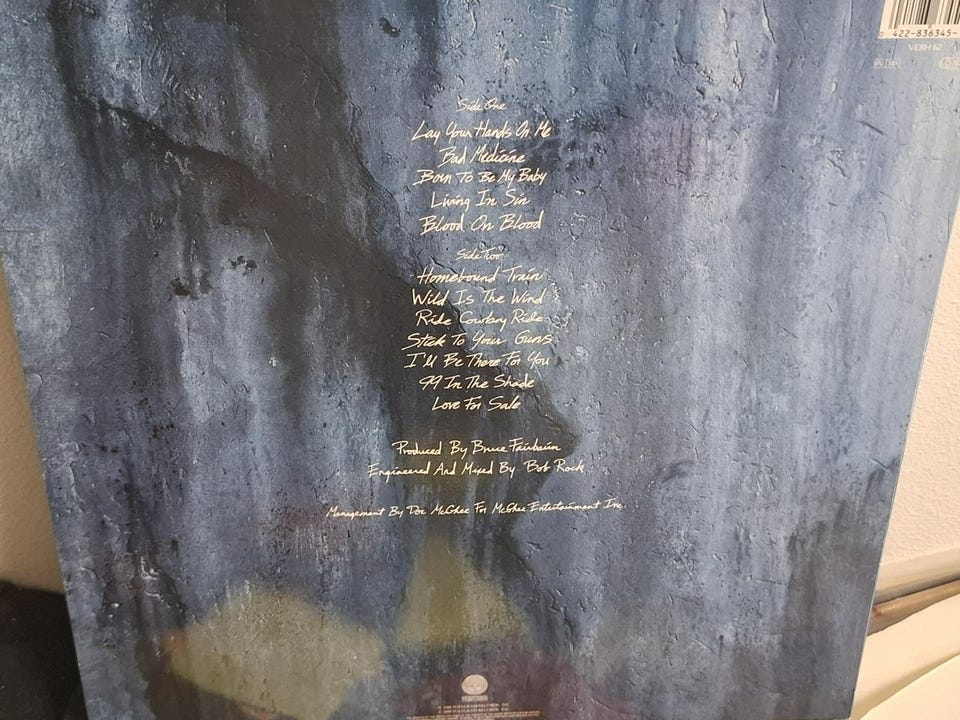 0 422-836345-
VERH 62
Side One
Lay Your Hands On Me
Bad Medicine
Born To Be My Baby
Living In Sin
Blood On Blood
Side Two
Homebound Train
Wild Is The Wind
Ride Cowboy Ride
Stick To Your Guns
I'll Be There For You
99 In The Shade
Love For Sale
Produced By Bruce Fairbairn
Engineered And Mixed By Bob Rock
Management By Doc McGhee For McGhee Entertainment Inc.